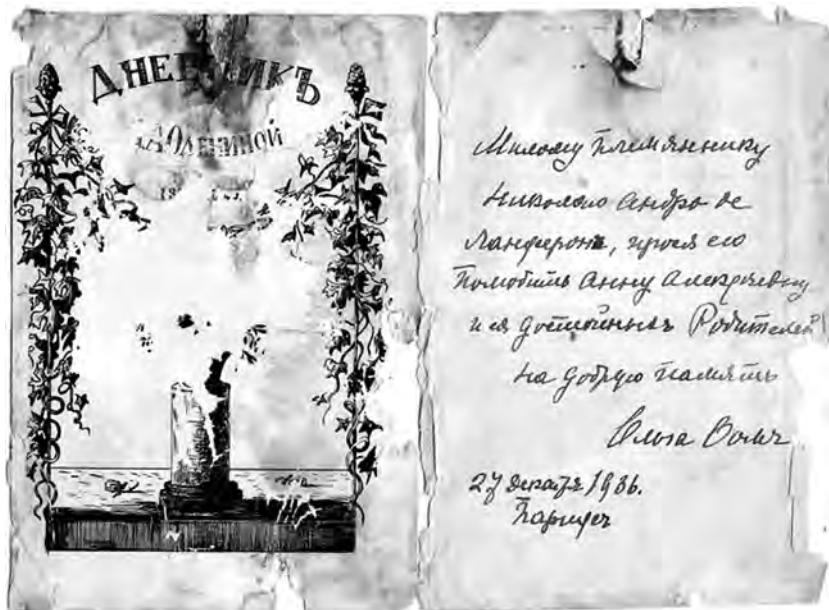 ДНЕВНИКЪ
А. ОЛЕНИНОЙ
Милому племяннику
Николаю Андро де
Ланжерону, прося его
полюбить Анну Алексѣевну
и ея достойныхъ Родителей
на добрую память
Ольга
27 декабря 1936.
Парижъ